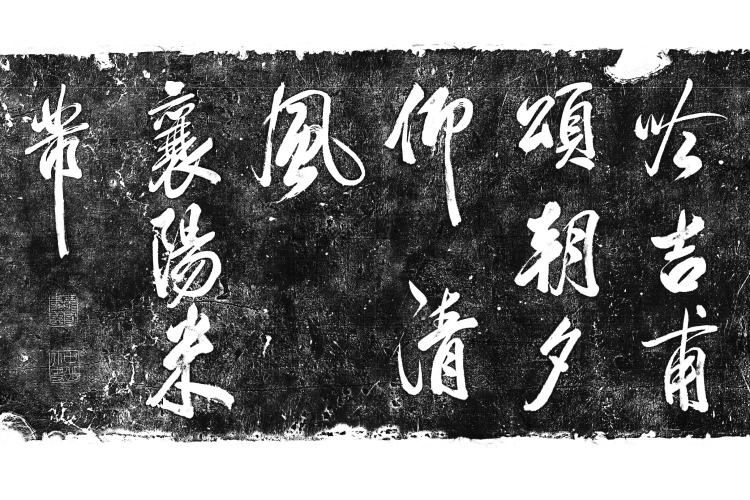 吟吉甫
頌朝夕
仰清
風
襄陽米
芾